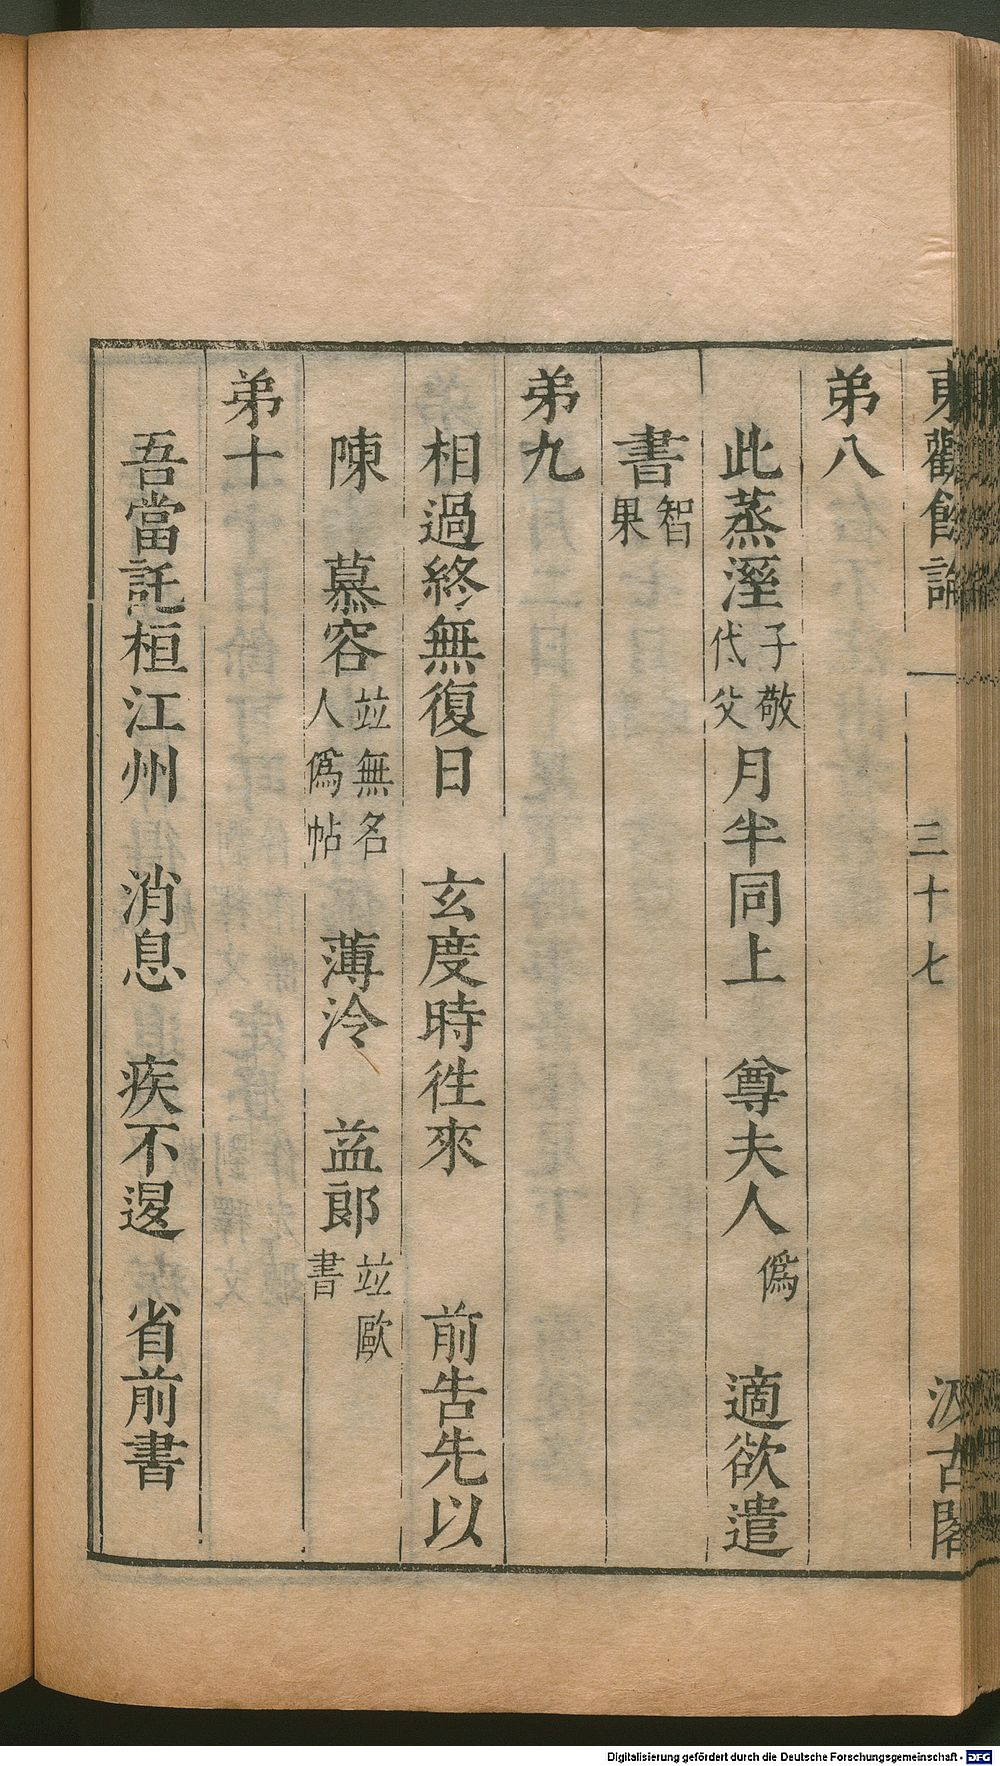 東觀餘論 三十七 汲古閣
弟八
此蒸溼子敬代父月半同上 尊夫人僞 適欲遣
書智果
弟九
相過終無復日 玄度時徃來 前告先以
陳 慕容並無名人僞帖 薄冷 益郎並歐書
弟十
吾當託桓江州 消息 疾不退 省前書
Digitalisierung gefördert durch die Deutsche Forschungsgemeinschaft - DFG